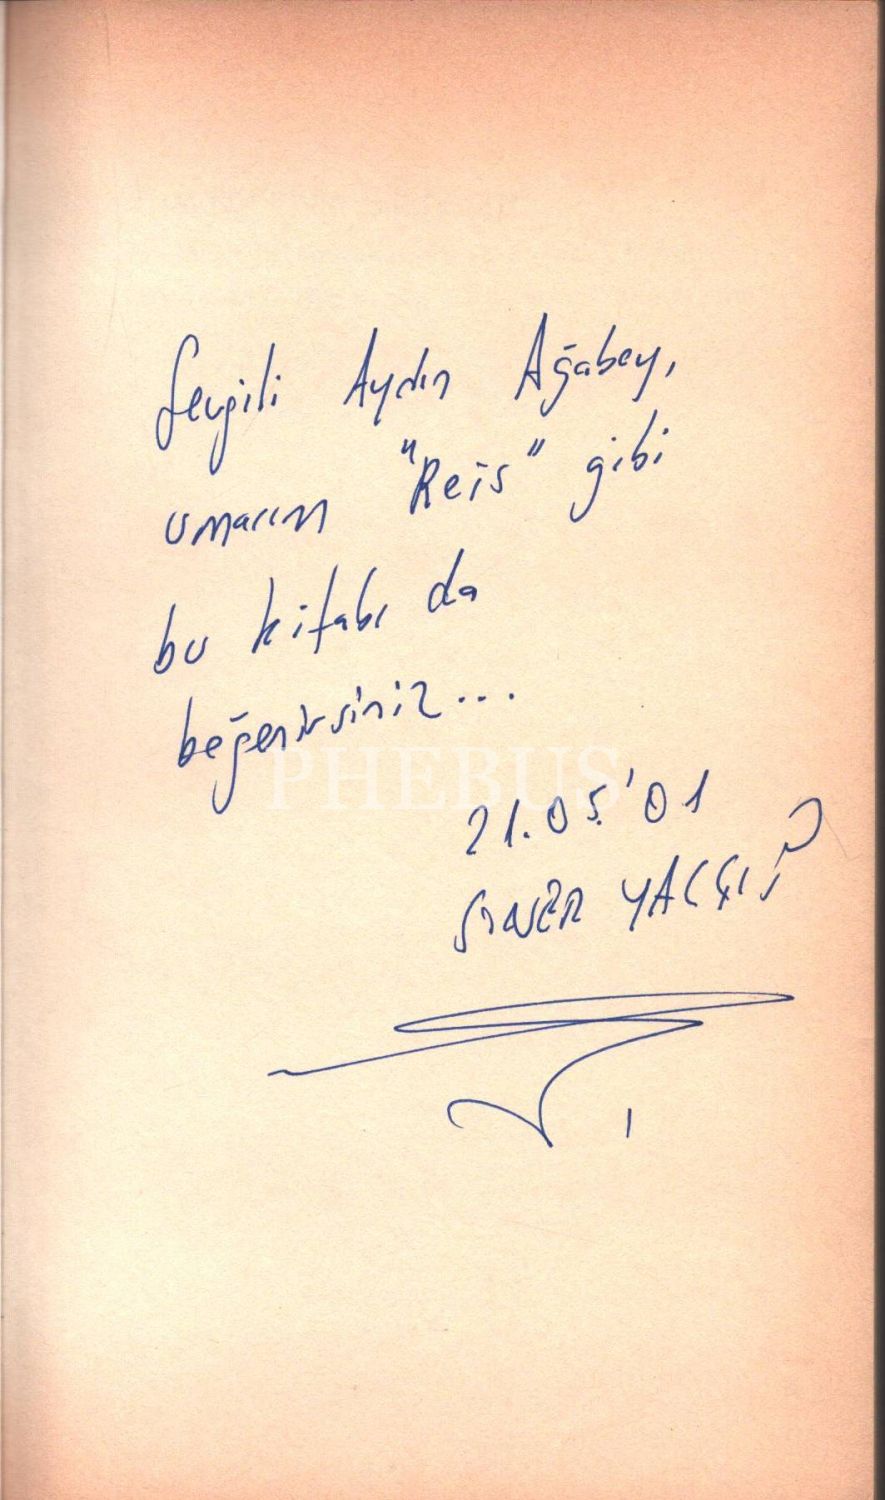 Sevgili Aydın Ağabey,
umarım "Reis" gibi
bu kitabı da
beğenirsiniz...
PHEBUS
21.05.'01
SONER YALÇIN